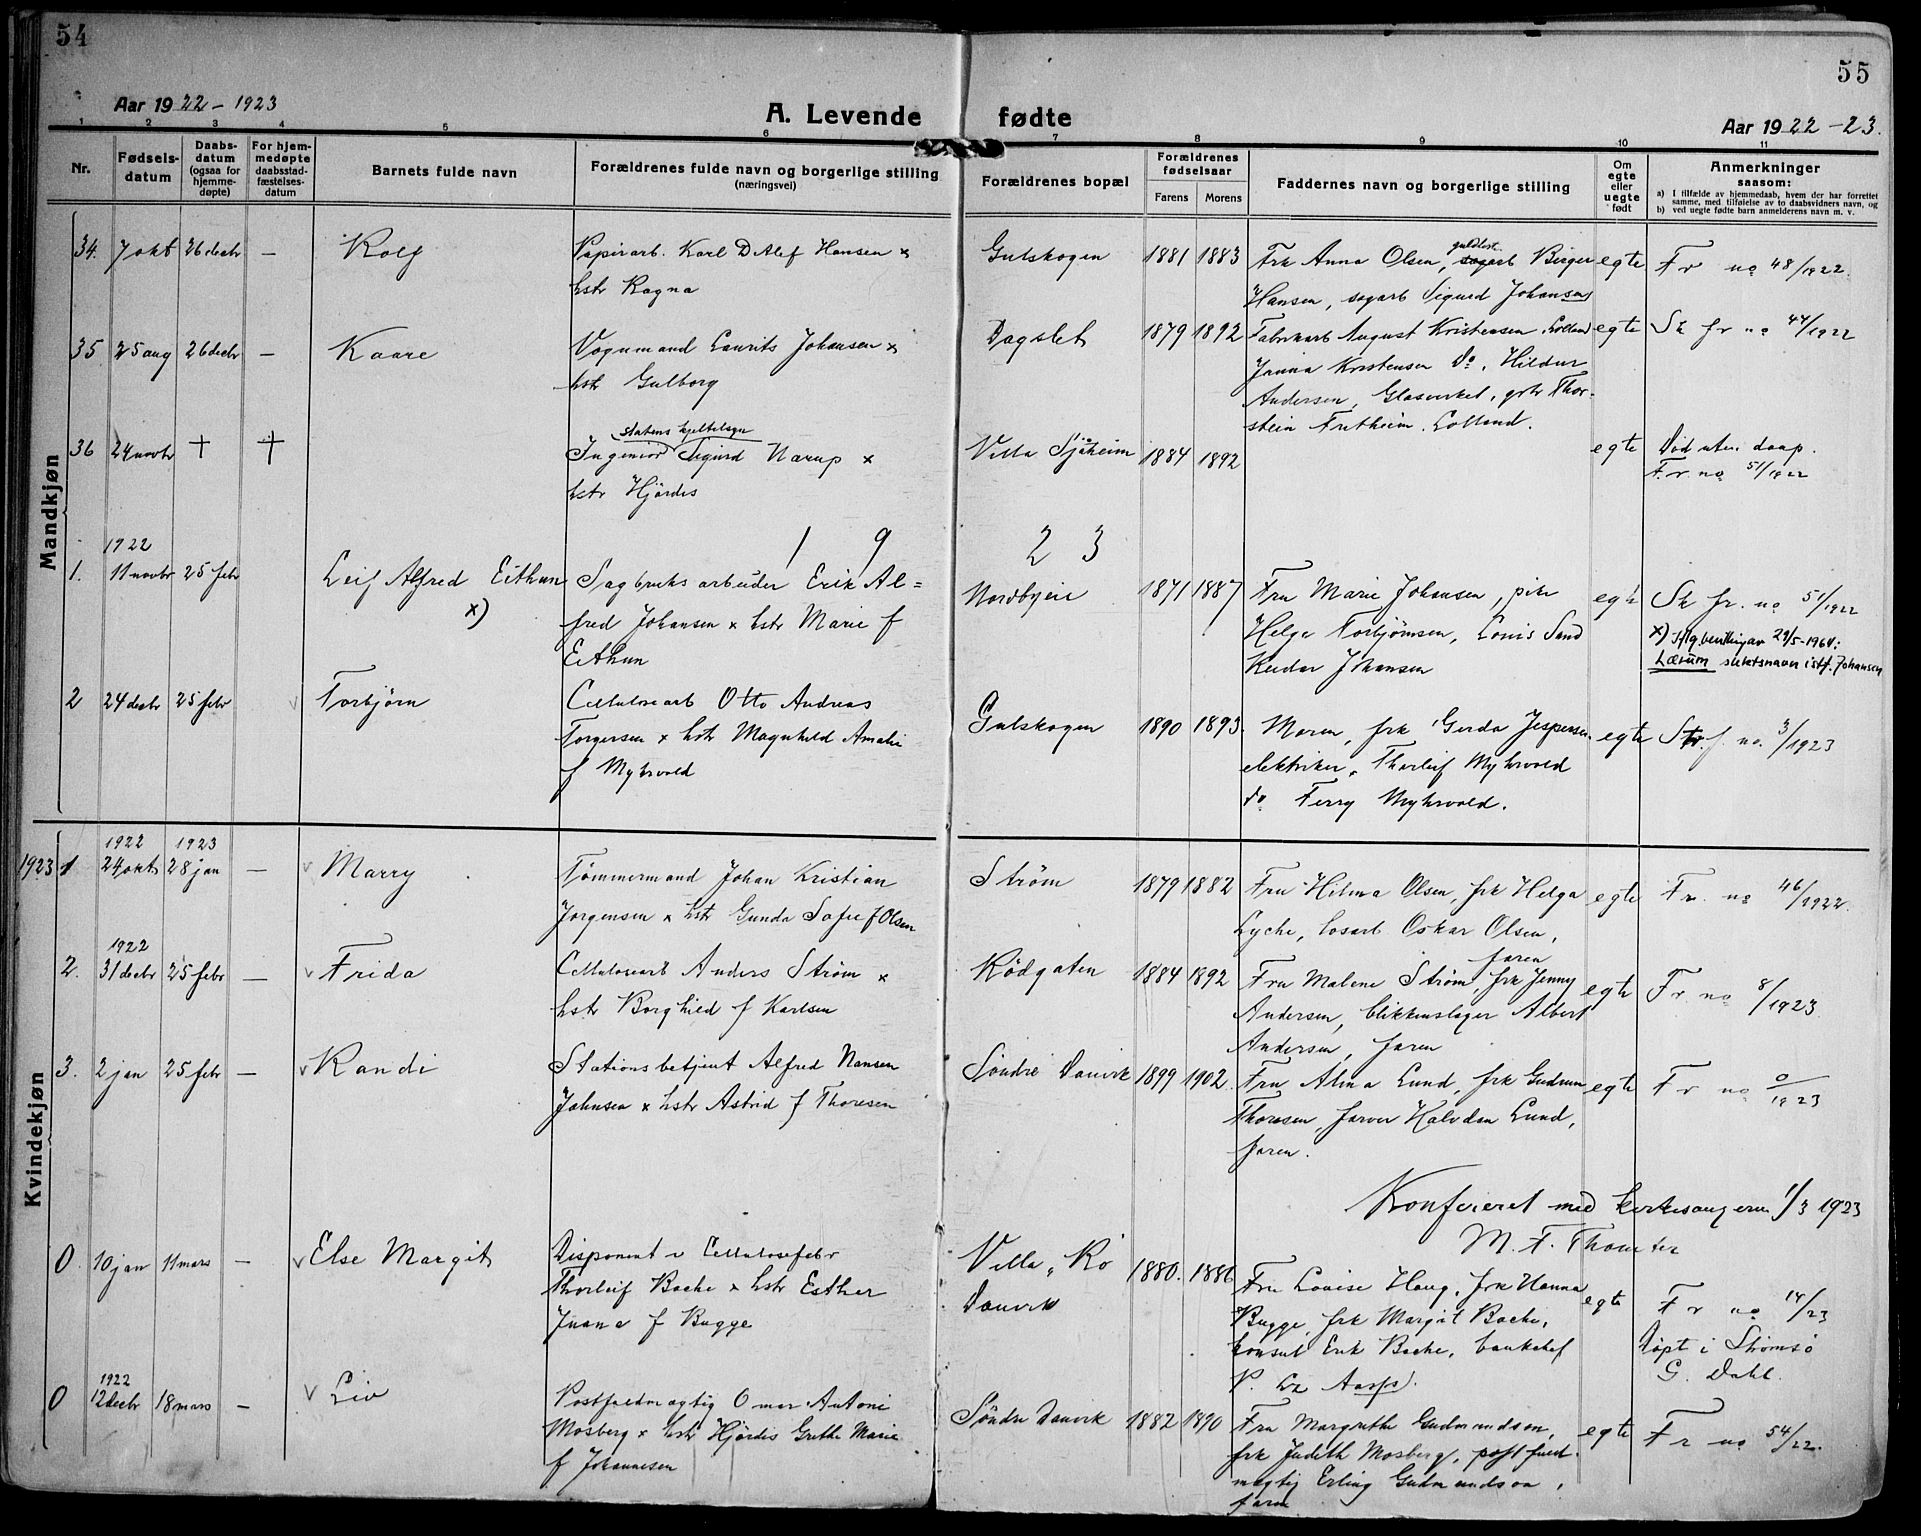 54
55
Aar 1922 - 1923
A. Levende fødte
Aar 1922 - 23.
1 2 3 4 5 6 7 8 9 10 11
Nr.
Fødsels-
datum
Daabs-
datum
(ogsaa for
hjemme-
døpte)
For hjem-
medøpte
daabsstad-
fæstelses-
datum
Barnets fulde navn
Forældrenes fulde navn og borgerlige stilling
(næringsvei)
Forældrenes bopæl
Forældrenes
fødselsaar
Farens Morens
Faddernes navn og borgerlige stilling
Om
egte
eller
uegte
født
Anmerkninger
saasom:
a) I tilfælde av hjemmedaab, hvem der har forrettet
samme, med tilføielse av to daabsvidners navn, og
b) ved uegte fødte barn anmelderens navn m. v.
Mandkjøn
34. 7 okt 26 decbr — Rolf
Papirarb. Karl Detlef Hansen x
hstr Ragna
Gulskogen 1881 1883
Frk Anna Olsen, sagarb Birger
Hansen, sagarb Sigurd Johansen
egte Fr no 48/1922.
35 25 aug 26 decbr — Kaare
Vognmand Laurits Johansen x
hstr Gulborg
Dagslet 1879 1892
Fabrikarb August Kristensen, Lolland
Janna Kristensen Do, Hildur
Andersen, Glasverket, grbr Thor-
stein Fretheim, Lolland.
egte Sk fr no 44/1922
36 24 novbr † †
Ingeniør Sigurd Narup x
hstr Hjördis
Villa Sjøheim 1884 1892
egte Død uten daap.
Fr. no 51/1922
1 9 2 3
1922
1. 11 novbr 25 febr Leif Alfred Eithun
x)
Sagbruksarbeider Erik Al=
fred Johansen x hstr Marie f
Eithun
Nordbyeie 1871 1887
Fru Marie Johansen, pike
Helga Torbjørnsen, Louis Sand
Reidar Johansen
egte Sk fr. no 51/1922
x) Iflg bevilling av 29/5-1964:
Lærum slektsnavn istf. Johansen
2 24 decbr 25 febr Torbjørn
Cellulosearb Otto Andreas
Torgersen x hstr Magnhild Amalie
f Myhrvold
Gulskogen 1890 1893.
Moren, frk Gerda Jespersen
elektriker, Thorleif Myhrvold
do Ferry Myhrvold.
egte fr. no. 3/1923
Kvindekjøn
1922 1923
1923 1 24 okt 28 jan — Marry
Tømmermand Johan Kristian
Jørgensen x hstr Gunda Sofie f Olsen
Strøm 1879 1882
Fru Hilma Olsen, frk Helga
Lyche, losarb Oskar Olsen,
faren
egte Fr. no 46/1922.
1922
2. 31 decbr 25 febr — Frida
Cellulosearb Anders Strøm x
hstr Borghild f Karlsen
Rödgaten 1884 1892
Fru Malene Strøm, frk Jenny
Andersen, blikkenslager Albert
Andersen, faren
egte Fr. no 8/1923
3. 2 jan 25 febr — Randi
Stationsbetjent Alfred Nansen
Johnsen x hstr Astrid f Thoresen
Søndre Danvik 1899 1902.
Fru Alma Lund, frk Gudrun
Thoresen, farver Halvdan Lund,
faren.
egte Fr no 0/1923
Konfereret med kirkesangeren 1/3 1923
M. F. Thomter
0. 10 jan 11 mars — Else Margit
Disponent v Cellulosefabr
Thorleif Bache x hstr Esther
Juana f Bugge
Villa Rø
Danvik
1880. 1886
Fru Louise Haug, frk Nanna
Bugge, frk Margit Bache,
konsul Erik Bache, bankchef
egte Fr no 14/23
Døpt i Strømsø
G. Dahl.
1922
0 12 decbr 18 mars — Liv
Postfuldmægtig Omar Antoni
Mosberg x hstr Hjördis Grethe Marie
f Johannesen
Søndre Danvik 1882 1890
Fru Margrethe Gudmundson,
frk Judith Mosberg, postfuld-
mægtig Erling Gudmundson,
faren
egte Fr no 54/22.